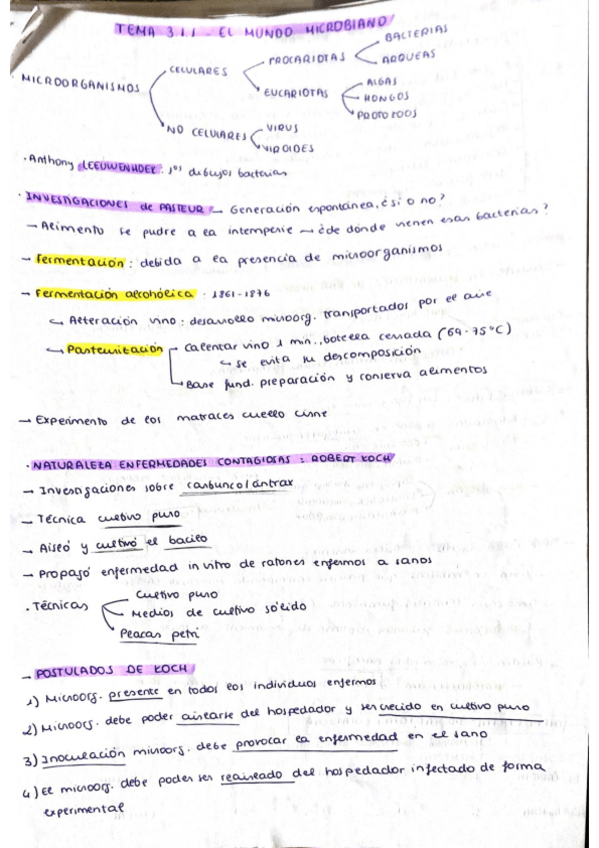 TEMA 3.1.1 - EL MUNDO MICROBIANO
MICROORGANISMOS
CELULARES
PROCARIOTAS
BACTERIAS
ARQUEAS
EUCARIOTAS
ALGAS
HONGOS
PROTOZOOS
NO CELULARES
VIRUS
VIROIDES
· Anthony LEEUWENHOEK: 1os dibujos bacterias
· INVESTIGACIONES de PASTEUR → Generación espontánea, ¿sí o no?
→ Alimento se pudre a la intemperie → ¿de dónde vienen esas bacterias?
→ Fermentación: debida a la presencia de microorganismos
→ Fermentación alcohólica : 1861-1876
↳ Alteración vino: desarrollo microorg. transportados por el aire
↳ Pasteurización
Calentar vino 1 min., botella cerrada (64-75°C)
↳ se evita su descomposición
Base fund. preparación y conserva alimentos
→ Experimento de los matraces cuello cisne
· NATURALEZA ENFERMEDADES CONTAGIOSAS : ROBERT KOCH
→ Investigaciones sobre carbunco/ántrax
→ Técnica cultivo puro
→ Aisló y cultivó el bacilo
→ Propagó enfermedad in vitro de ratones enfermos a sanos
· Técnicas
Cultivo puro
Medios de cultivo sólido
Placas petri
→ POSTULADOS DE KOCH
1) Microorg. presente en todos los individuos enfermos
2) Microorg. debe poder aislarse del hospedador y ser crecido en cultivo puro
3) Inoculación microorg. debe provocar la enfermedad en el sano
4) El microorg. debe poder ser reaislado del hospedador infectado de forma
experimental